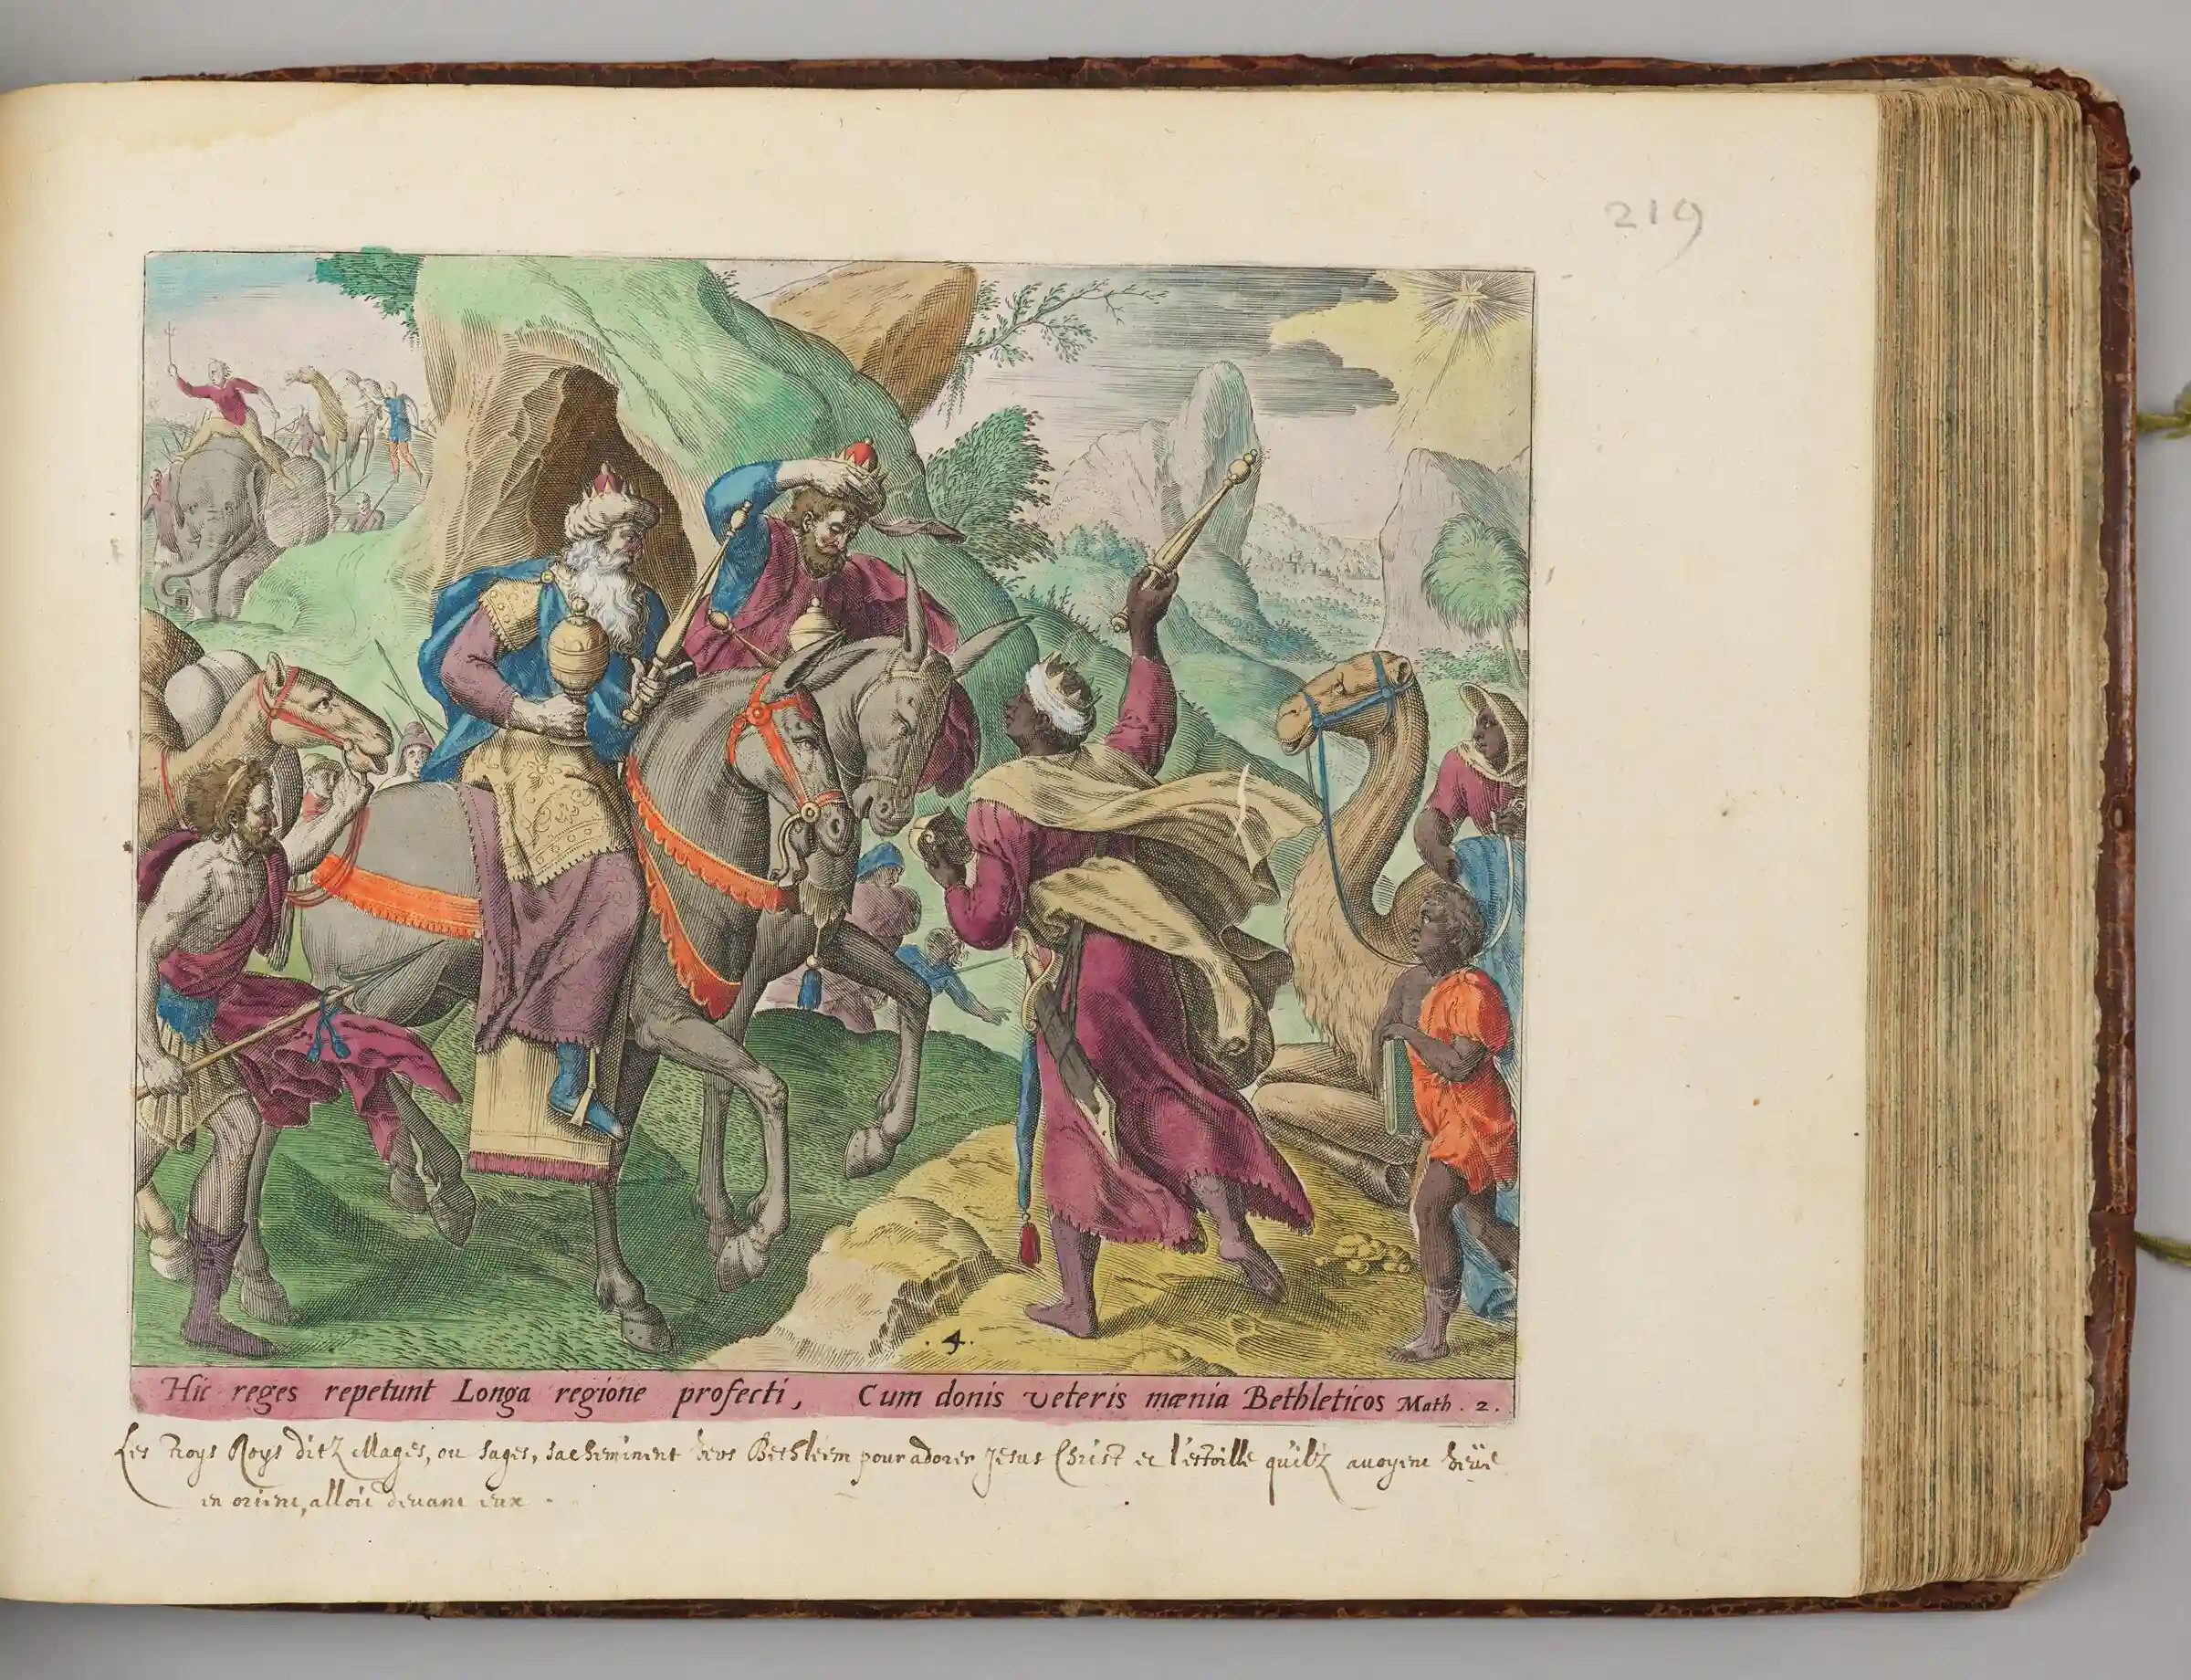 219
. 4 .
Hic reges repetunt Longa regione profecti, Cum donis veteris mœnia Bethleticos Math. 2.
Les troys Roys ditz Mages, ou sages, sacheminent vers Bethleem pour adorer Jesus Christ et l'estoille quilz auoyent veüe
en orient, alloit deuant eux .